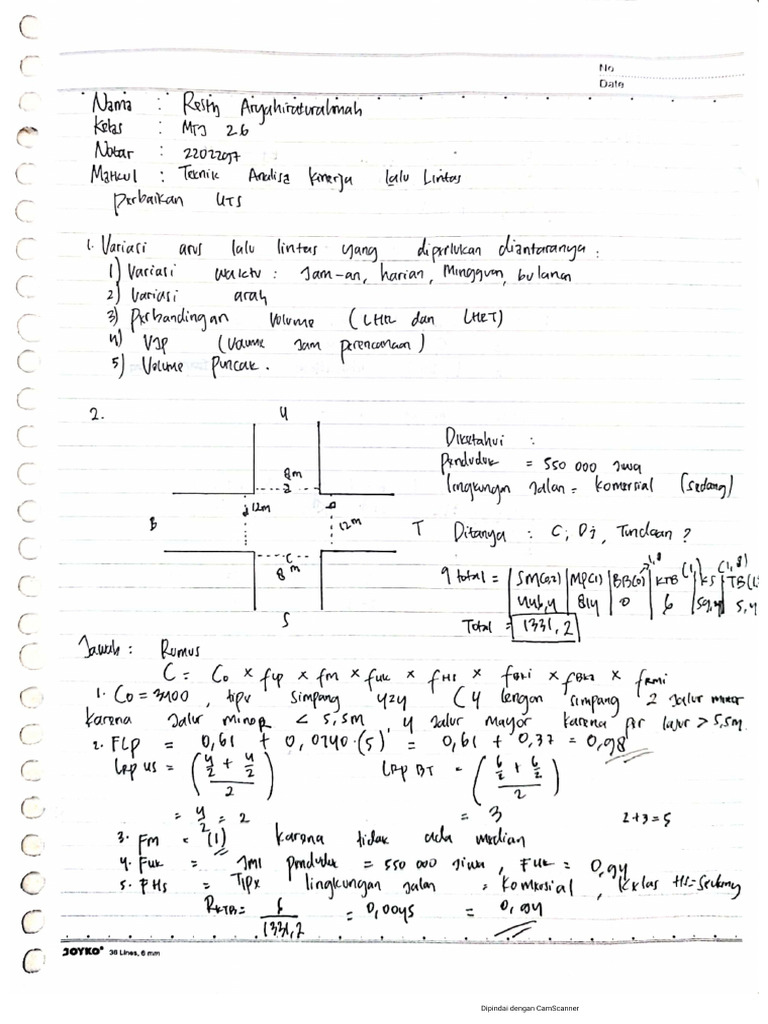 No
Date
Nama : Resty Aryahiraturahmah
Kelas : MTJ 2.6
Notar : 2202297
Matkul : Teknik Analisa Kinerja Lalu Lintas
Perbaikan UTS
1. Variasi arus lalu lintas yang diperlukan diantaranya :
1) Variasi waktu : Jam-an, harian, Mingguan, bulanan
2) Variasi arah
3) Perbandingan Volume (LHR dan LHRT)
4) VJP (Volume Jam perencanaan)
5) Volume Puncak.
2.
U
8m
a
d 12m
b
12m
B
T
c
8 m
S
Diketahui :
Penduduk = 550 000 Jiwa
lingkungan Jalan = komersial (sedang)
Ditanya : C, Dj, Tundaan ?
q total = | SM(0,2) | MP(1) | BB(0) 1,8 | KTB (1) | KS (1,8) | TB(1,
446,4 | 814 | 0 | 6 | 59,4 | 5,4
Total = 1331,2
Jawab : Rumus
C = Co × fLP × fm × fuk × fHS × fBki × fBka × fRmi
1. Co = 3400 , tipe simpang 424 (4 lengan simpang 2 Jalur minor
karena Jalur minor < 5,5m, 4 Jalur Mayor karena per lajur > 5,5m.
2. FLP = 0,61 + 0,0740 (5) = 0,61 + 0,37 = 0,98
LRP US = (4/2 + 4/2 / 2)
LRP BT = (6/2 + 6/2 / 2)
= 4/2 = 2
= 3
2+3=5
3. Fm = (1) karena tidak ada median
4. Fuk = Jml penduduk = 550 000 Jiwa , FUK = 0,94
5. FHS = Tipe lingkungan Jalan = Komersial , Kelas HS=Sedang
RKTB = 6/1331,2 = 0,0045 = 0,94
JOYKO 36 Lines, 6 mm
Dipindai dengan CamScanner